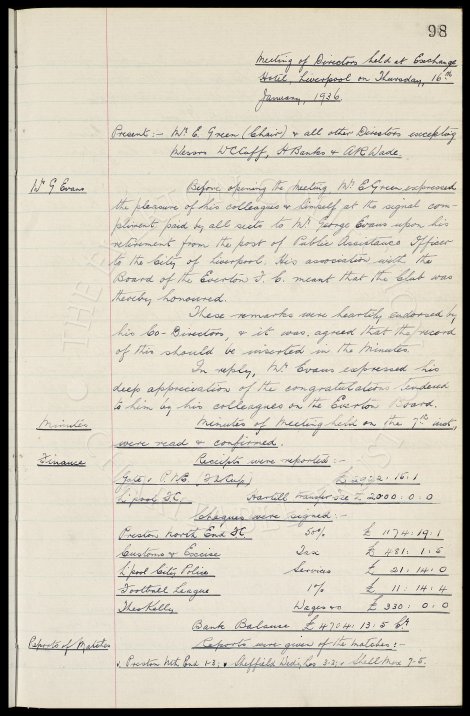 98
Meeting of Directors held at Exchange
Hotel, Liverpool on Thursday, 16th
January, 1936.
Present:- Mr E. Green (Chair) & all other Directors excepting
Messrs W C Cuff, A Banks & A R Wade.
Mr G Evans Before opening the meeting Mr E Green expressed
the pleasure of his colleagues & himself at the signal com-
pliment paid by all sects to Mr George Evans upon his
retirement from the post of Public Assistance Officer
to the City of Liverpool. His association with the
Board of the Everton F. C. meant that the Club was
thereby honoured.
These remarks were heartily endorsed by
his Co-Directors, & it was agreed that the record
of this should be inserted in the Minutes.
In reply, Mr Evans expressed his
deep appreciation of the congratulations tendered
to him by his colleagues on the Everton Board.
Minutes Minutes of Meeting held on the 7th inst,
were read & confirmed.
Finance Receipts were reported:-
Gate, v P.N.E. (F A Cup) £2922. 16. 1
L'pool F.C. Hartill transfer fee £ 2000. 0. 0
Cheques were signed:-
Preston North End F.C. 50% £ 1174. 19. 1
Customs & Excise Tax £ 481. 1. 5
L'pool City Police Services £ 21. 14. 0
Football League 1% £ 11. 14. 4
Theo Kelly Wages &c £ 330. 0. 0
Bank Balance £ 4704. 13. 5
Reports of Matches Reports were given of the matches:-
v Preston Nth End 1-3; v Sheffield Wed; Res 3-3; v Shell Mex 7-5.